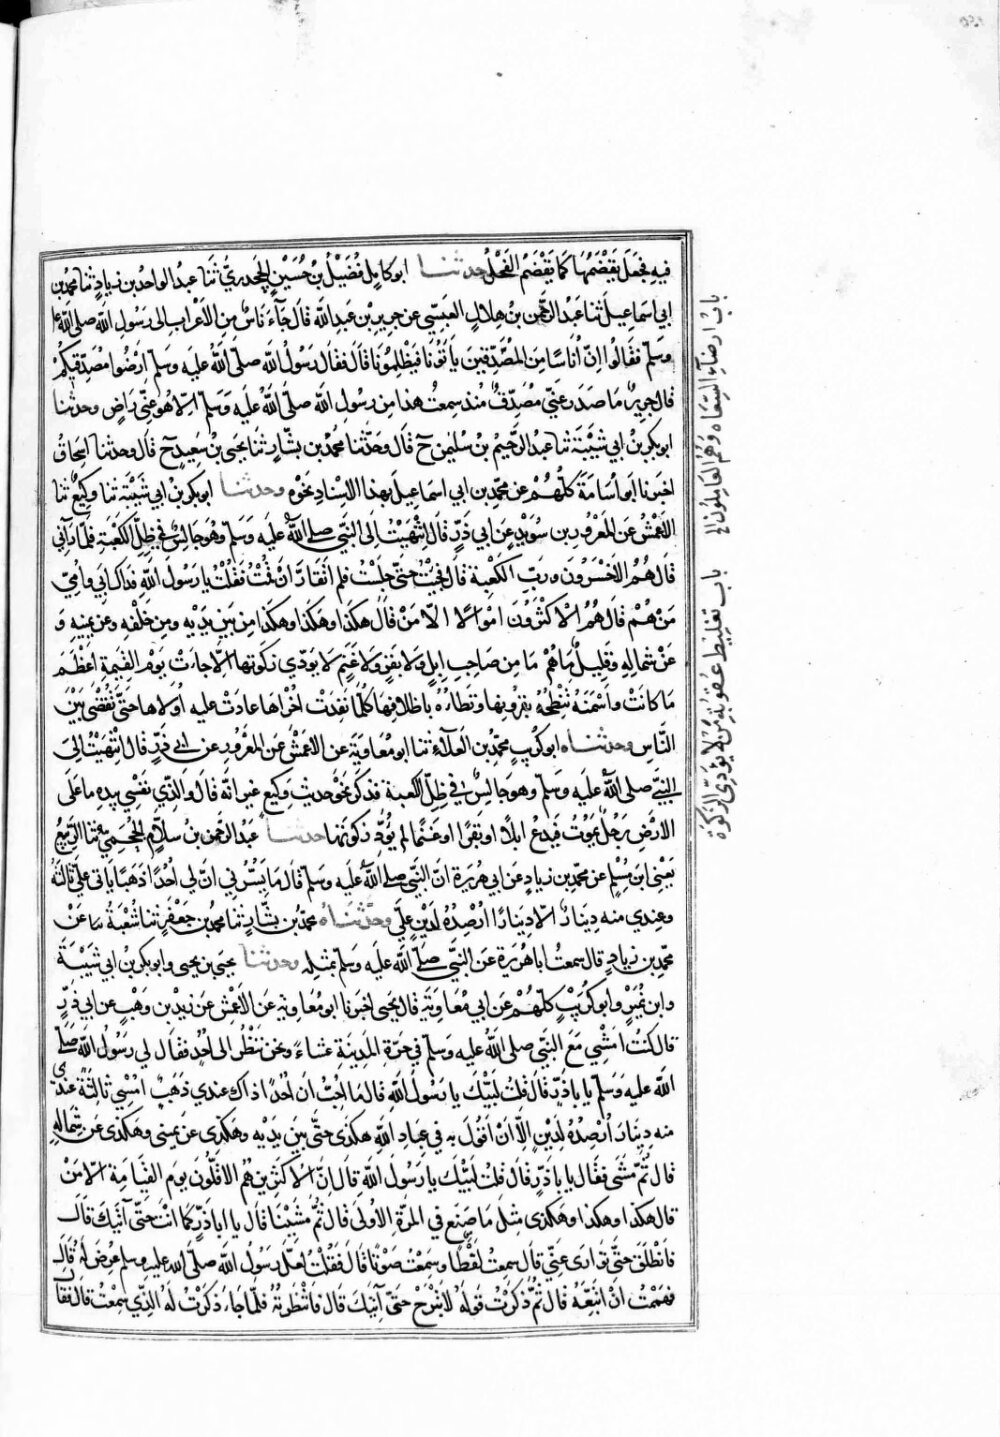 فيه فجعل يقضمها كما يقضم الفحل حدثنا ابو كامل فضيل بن حسين الجحدري ثنا عبد الواحد بن زياد ثنا محمد بن
ابي اسماعيل ثنا عبد الرحمن بن هلال العبسي عن جرير بن عبد الله قال جاء ناس من الاعراب الى رسول الله صلى الله عليه
وسلم فقالوا ان اناسا من المصدقين يأتوننا فيظلموننا قال فقال رسول الله صلى الله عليه وسلم ارضوا مصدقيكم
قال جرير ما صدر عني مصدق منذ سمعت هذا من رسول الله صلى الله عليه وسلم الا هو عني راض وحدثنا
ابو بكر بن ابي شيبة ثنا عبد الرحيم بن سليمن ح قال وحدثنا محمد بن بشار ثنا يحيى بن سعيد ح قال وحدثنا اسحاق
اخبرنا ابو اسامة كلهم عن محمد بن ابي اسماعيل بهذا الاسناد نحوه وحدثنا ابو بكر بن ابي شيبة ثنا وكيع ثنا
الاعمش عن المعرور بن سويد عن ابي ذر قال انتهيت الى النبي صلى الله عليه وسلم وهو جالس في ظل الكعبة فلما رآني
قال هم الاخسرون ورب الكعبة قال فجئت حتى جلست فلم اتقار ان قمت فقلت يا رسول الله فداك ابي وامي
من هم قال هم الاكثرون اموالا الا من قال هكذا وهكذا وهكذا من بين يديه ومن خلفه وعن يمينه و
عن شماله وقليل ما هم ما من صاحب ابل ولا بقر ولا غنم لا يؤدي زكوتها الا جاءت يوم القيمة اعظم
ما كانت واسمنه تنطحه بقرونها وتطأه باظلافها كلما نفدت اخراها عادت عليه اولاها حتى يقضى بين
الناس وحدثناه ابو كريب محمد بن العلاء ثنا ابو معاوية عن الاعمش عن المعرور عن ابي ذر قال انتهيت الى
النبي صلى الله عليه وسلم وهو جالس في ظل الكعبة فذكر نحو حديث وكيع غير انه قال والذي نفسي بيده ما على
الارض رجل يموت فيدع ابلا او بقرا او غنما لم يؤد زكوتها حدثنا عبد الرحمن بن سلام الجمحي ثنا الربيع
يعني ابن مسلم عن محمد بن زياد عن ابي هريرة ان النبي صلى الله عليه وسلم قال ما يسرني ان لي احدا ذهبا ياتي علي ثالثة
وعندي منه دينار الا دينارا ارصده لدين علي وحدثناه محمد بن بشار ثنا محمد بن جعفر ثنا شعبة عن
محمد بن زياد قال سمعت ابا هريرة عن النبي صلى الله عليه وسلم بمثله وحدثنا يحيى بن يحيى وابو بكر بن ابي شيبة
وابن نمير وابو كريب كلهم عن ابي معاوية قال يحيى اخبرنا ابو معاوية عن الاعمش عن زيد بن وهب عن ابي ذر
قال كنت امشي مع النبي صلى الله عليه وسلم في حرة المدينة عشاء ونحن ننظر الى احد فقال لي رسول الله صلى
الله عليه وسلم يا باذر قال قلت لبيك يا رسول الله قال ما احب ان احدا ذاك عندي ذهب امسي ثالثة عندي
منه دينار ارصده لدين الا ان اقول به في عباد الله هكذى حتى بين يديه وهكذى عن يمينى وهكذى عن شماله
قال ثم مشى فقال يا باذر قال قلت لبيك يا رسول الله قال ان الاكثرين هم الاقلون يوم القيامة الا من
قال هكذا وهكذا وهكذى مثل ما صنع في المرة الأولى قال ثم مشينا قال يا اباذر كما انت حتى آتيك قال
فانطلق حتى توارى عني قال سمعت لغطا وسمعت صوتا قال فقلت لعل رسول الله صلى الله عليه وسلم عرض له قال
فهممت ان اتبعه قال ثم ذكرت قوله لا تبرح حتى آتيك قال فانتظرته فلما جاء ذكرت له الذي سمعت قال فقال
باب ارضاء السعاة وهم العاملون
باب تغليظ عقوبة من لا يؤدى الزكوة